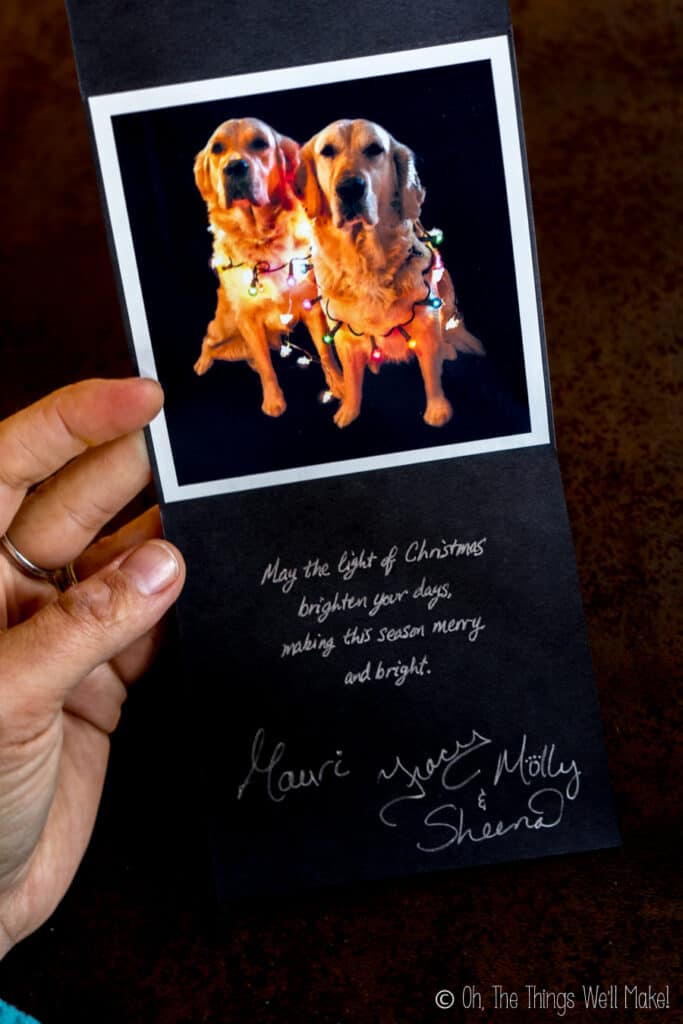 May the light of Christmas
brighten your days,
making this season merry
and bright.
Mauri Tracy Mölly
&
Sheena
© Oh, The Things We'll Make!